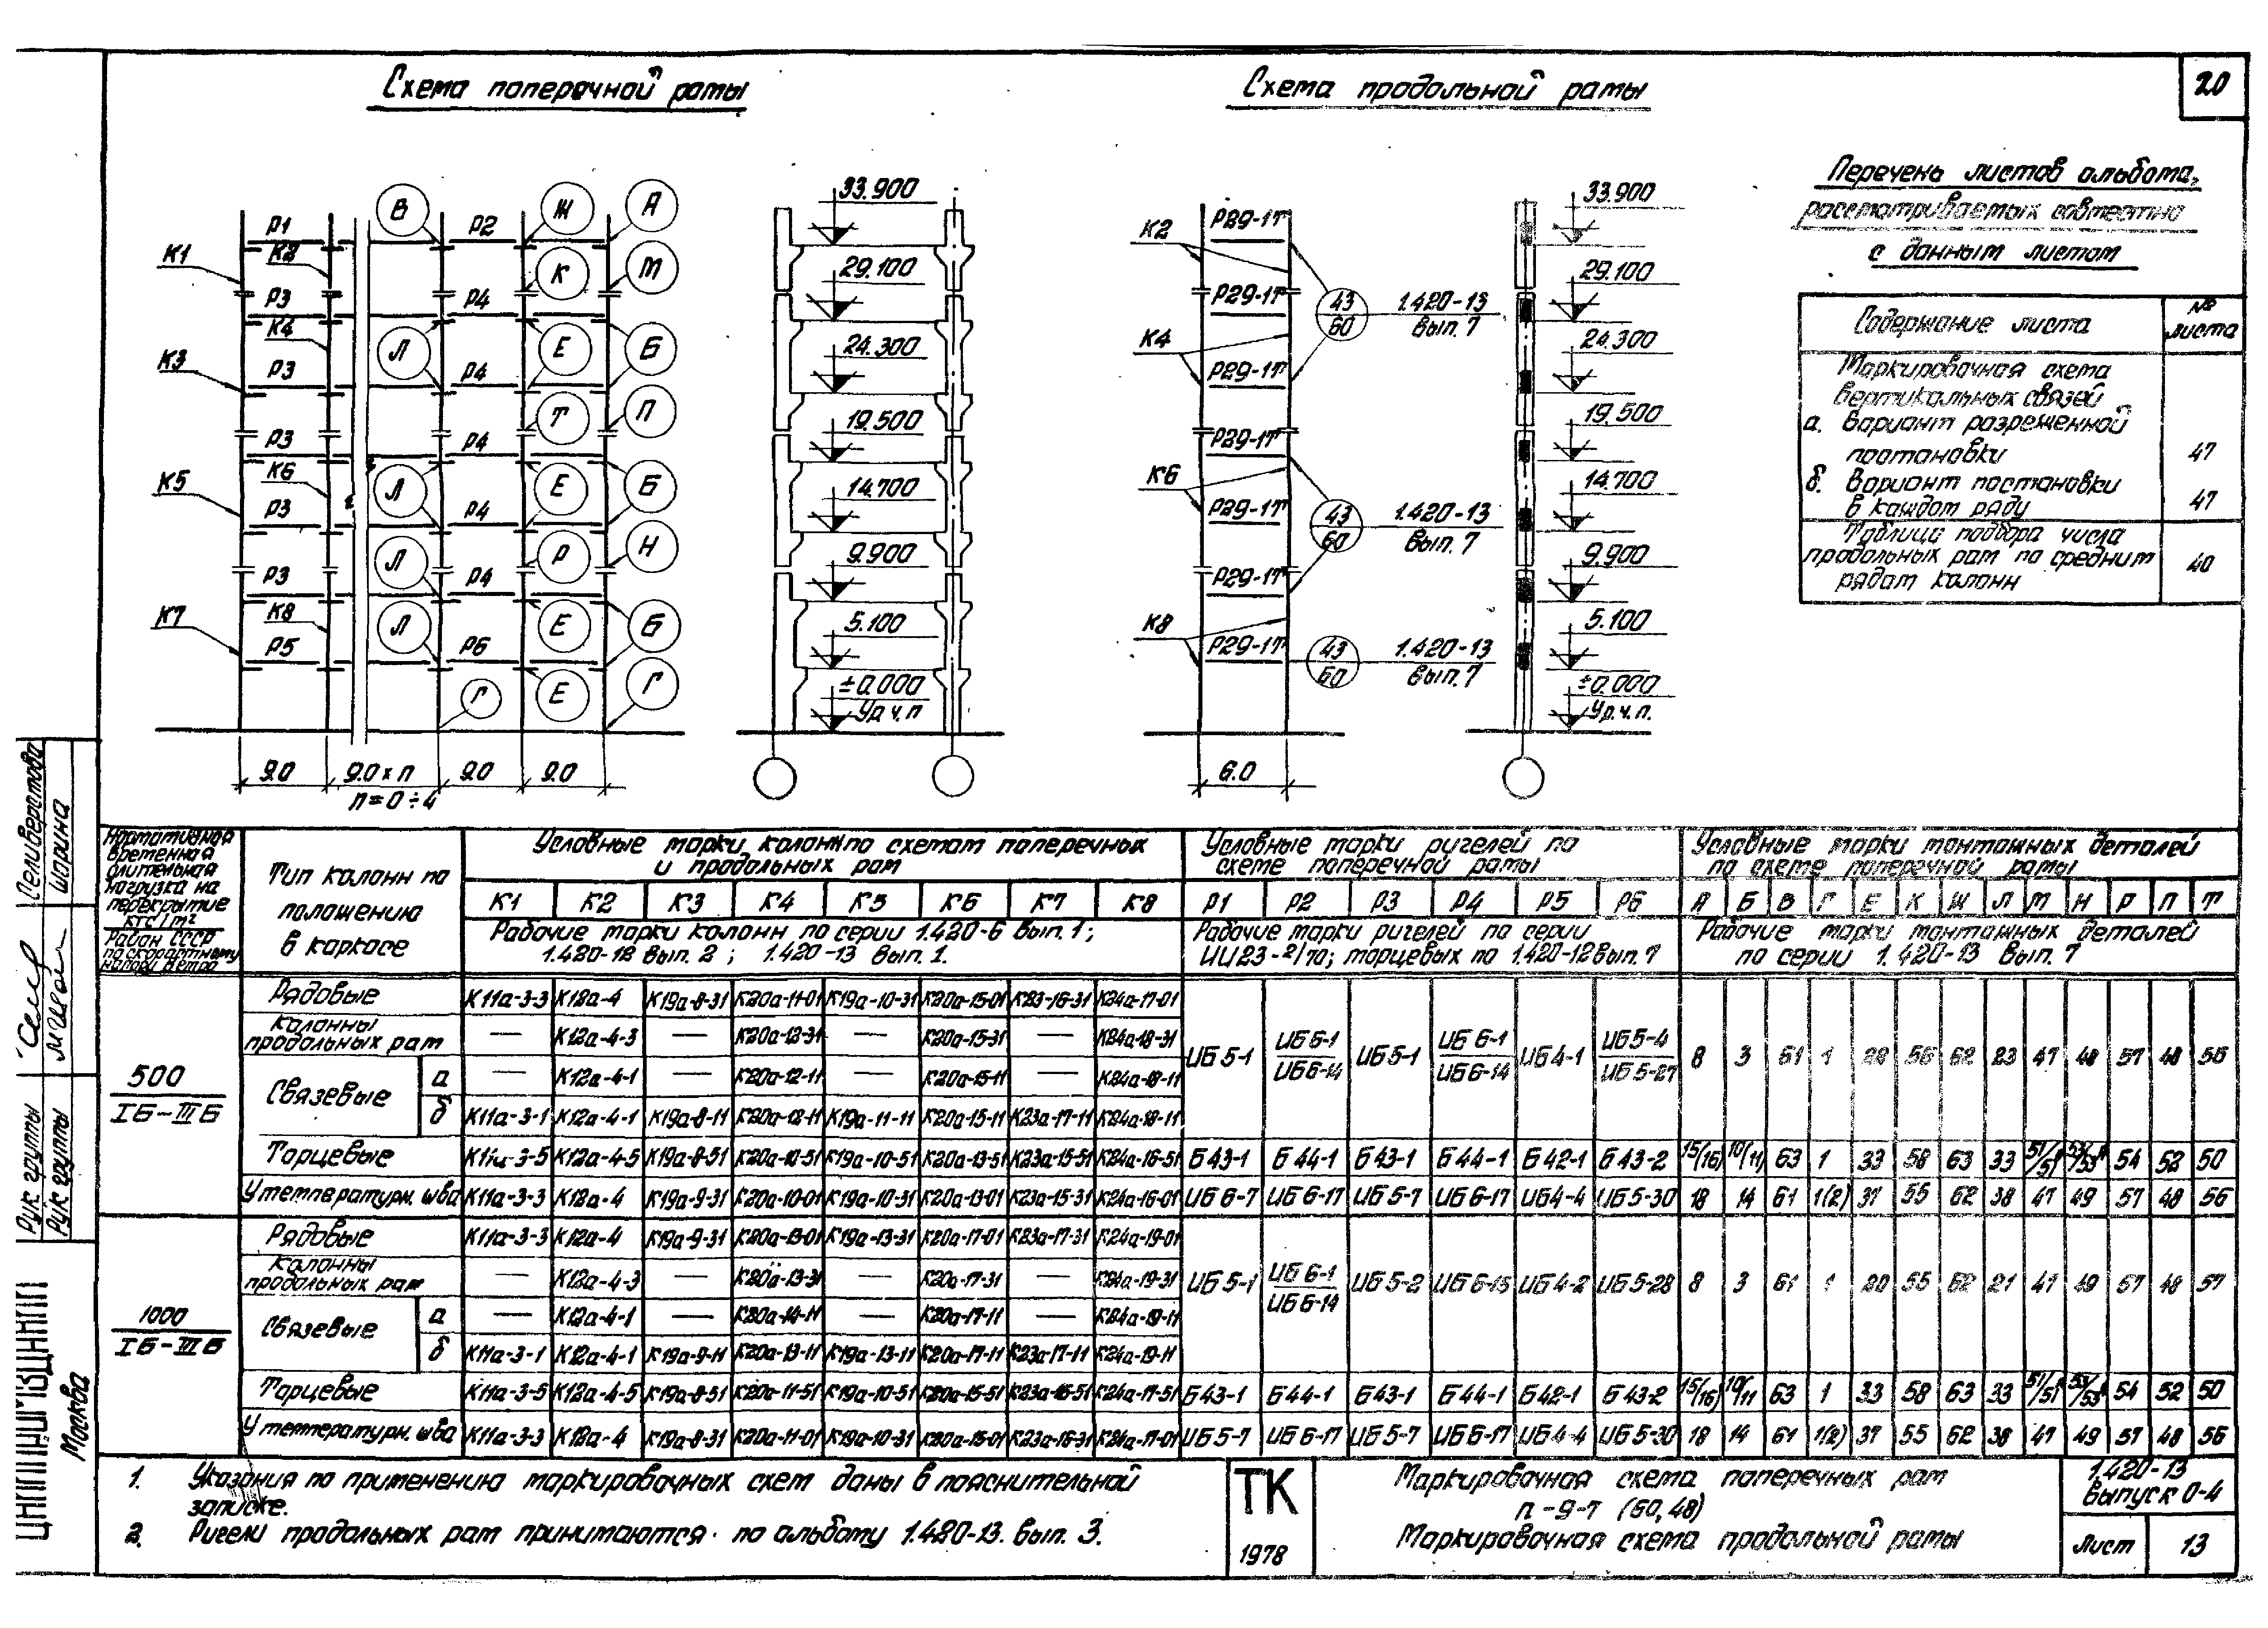 20
Схема поперечной рамы
Схема продольной рамы
Перечень листов альбома,
рассматриваемых совместно
с данным листом
Содержание листа
№ листа
Маркировочная схема
вертикальных связей
а. Вариант разреженной
постановки 47
б. Вариант постановки
в каждом ряду 47
Таблица подбора числа
продольных рам по средним
рядам колонн 40
К1 К2 К3 К4 К5 К6 К7 К8
Р1 Р2
Р3 Р4
Р3 Р4
Р3 Р4
Р3 Р4
Р3 Р4
Р5 Р6
В Ж А
К М
Л Е Б
Т П
Л Е Б
Л Р Н
Л Е Б
Г Е Г
9.0 9.0 х п 9.0 9.0
п = 0 ÷ 4
33.900
29.100
24.300
19.500
14.700
9.900
5.100
±0.000
Ур.ч.п
К2
К4
К6
К8
Р29-1т
Р29-1т
Р29-1т
Р29-1т
Р29-1т
Р29-1т
Р29-1т
43/60 1.420-13 вып. 7
43/60 1.420-13 вып. 7
43/60 1.420-13 вып. 7
6.0
33.900
29.100
24.300
19.500
14.700
9.900
5.100
±0.000
Ур.ч.п.
Нормативная
временная
длительная
нагрузка на
перекрытие
кгс/м²
Район СССР
по скоростному
напору ветра
Тип колонн по
положению
в каркасе
Условные марки колонн по схемам поперечных
и продольных рам
К1 К2 К3 К4 К5 К6 К7 К8
Рабочие марки колонн по серии 1.420-6 вып. 1;
1.420-12 вып. 2; 1.420-13 вып. 1.
Условные марки ригелей по
схеме поперечной рамы
Р1 Р2 Р3 Р4 Р5 Р6
Рабочие марки ригелей по серии
ИИ23-2/70; торцевых по 1.420-12 вып. 7
Условные марки монтажных деталей
по схеме поперечной рамы
А Б В Г Е К Ж Л М Н Р П Т
Рабочие марки монтажных деталей
по серии 1.420-13 вып. 7
500
IБ-IIIБ
Рядовые К11а-3-3 К12а-4 К19а-8-31 К20а-11-01 К19а-10-31 К20а-15-01 К23-16-31 К24а-17-01
Колонны
продольных рам — К12а-4-3 — К20а-12-31 — К20а-15-31 — К24а-18-31
Связевые
а — К12а-4-1 — К20а-12-11 — К20а-15-11 — К24а-18-11
б К11а-3-1 К12а-4-1 К19а-8-11 К20а-12-11 К19а-11-11 К20а-15-11 К23а-17-11 К24а-18-11
ИБ 5-1 ИБ 6-1/ИБ 6-14 ИБ 5-1 ИБ 6-1/ИБ 6-14 ИБ 4-1 ИБ 5-4/ИБ 5-27 8 3 61 1 20 56 62 23 47 48 57 48 56
Торцевые К11а-3-5 К12а-4-5 К19а-8-51 К20а-10-51 К19а-10-51 К20а-13-51 К23а-15-51 К24а-16-51 Б 43-1 Б 44-1 Б 43-1 Б 44-1 Б 42-1 Б 43-2 15/16 10/11 63 1 33 58 63 33 54 52 50
У температурн. шва К11а-3-3 К12а-4 К19а-9-31 К20а-10-01 К19а-10-31 К20а-13-01 К23а-15-31 К24а-16-01 ИБ 6-7 ИБ 6-17 ИБ 5-7 ИБ 6-17 ИБ 4-4 ИБ 5-30 18 14 61 1(2) 37 55 62 38 47 49 57 48 56
1000
IБ-IIIБ
Рядовые К11а-3-3 К12а-4 К19а-9-31 К20а-13-01 К19а-13-31 К20а-17-01 К23а-17-31 К24а-19-01
Колонны
продольных рам — К12а-4-3 — К20а-13-31 — К20а-17-31 — К24а-19-31
Связевые
а — К12а-4-1 — К20а-14-11 — К20а-17-11 — К24а-19-11
б К11а-3-1 К12а-4-1 К19а-9-11 К20а-13-11 К19а-13-11 К20а-17-11 К23а-17-11 К24а-19-11
ИБ 5-1 ИБ 6-1/ИБ 6-14 ИБ 5-2 ИБ 6-15 ИБ 4-2 ИБ 5-28 8 3 61 1 20 55 62 21 47 49 57 48 57
Торцевые К11а-3-5 К12а-4-5 К19а-8-51 К20а-11-51 К19а-10-51 К20а-15-51 К23а-16-51 К24а-17-51 Б 43-1 Б 44-1 Б 43-1 Б 44-1 Б 42-1 Б 43-2 15/16 10/11 63 1 33 58 63 33 54 52 50
У температурн. шва К11а-3-3 К12а-4 К19а-8-31 К20а-11-01 К19а-10-31 К20а-15-01 К23а-16-31 К24а-17-01 ИБ 5-7 ИБ 6-17 ИБ 5-7 ИБ 6-17 ИБ 4-4 ИБ 5-30 18 14 61 1(2) 37 55 62 38 47 49 57 48 56
1. Указания по применению маркировочных схем даны в пояснительной
записке.
2. Ригели продольных рам принимаются по альбому 1.420-13. вып. 3.
ТК
1978
Маркировочная схема поперечных рам
п-9-7 (60, 48)
Маркировочная схема продольной рамы
1.420-13
выпуск 0-4
Лист 13
Рук. группы Селиверстова
Рук. группы Шарина
Москва